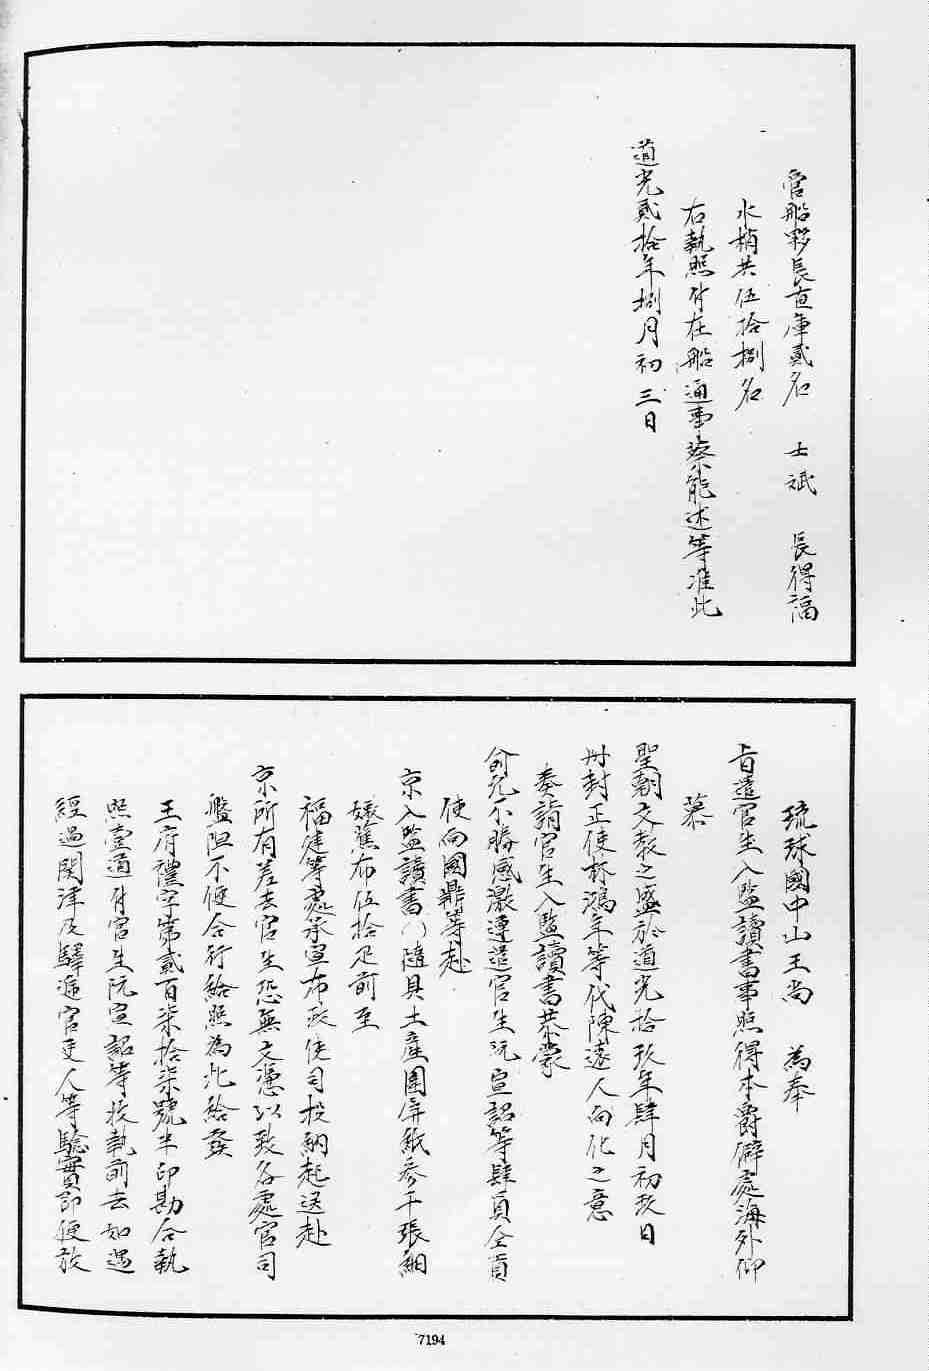 官船夥長直庫貳名　士斌　長得福
水梢共伍拾捌名
右執照付在船通事蔡能述等准此
道光貳拾年捌月初三日
琉球國中山王尚　為奉
旨遣官生入監讀書事照得本爵僻處海外仰
慕
聖朝文教之盛於道光拾玖年肆月初玖日
冊封正使林鴻年等代陳遠人向化之意
奏請官生入監讀書恭蒙
俞允不勝感激遵遣官生阮宣詔等肆員仝貢
使向國鼎等赴
京入監讀書()隨具土產圍屏紙參千張細
嫩蕉布伍拾疋前至
福建等處承宣布政使司投納起送赴
京所有差去官生恐無文憑以致各處官司
盤阻不便合行給照為此給發
王府禮字第貳百柒拾柒號半印勘合執
照壹通付官生阮宣詔等收執前去如遇
經過關津及驛遞官吏人等驗實即便放
7194